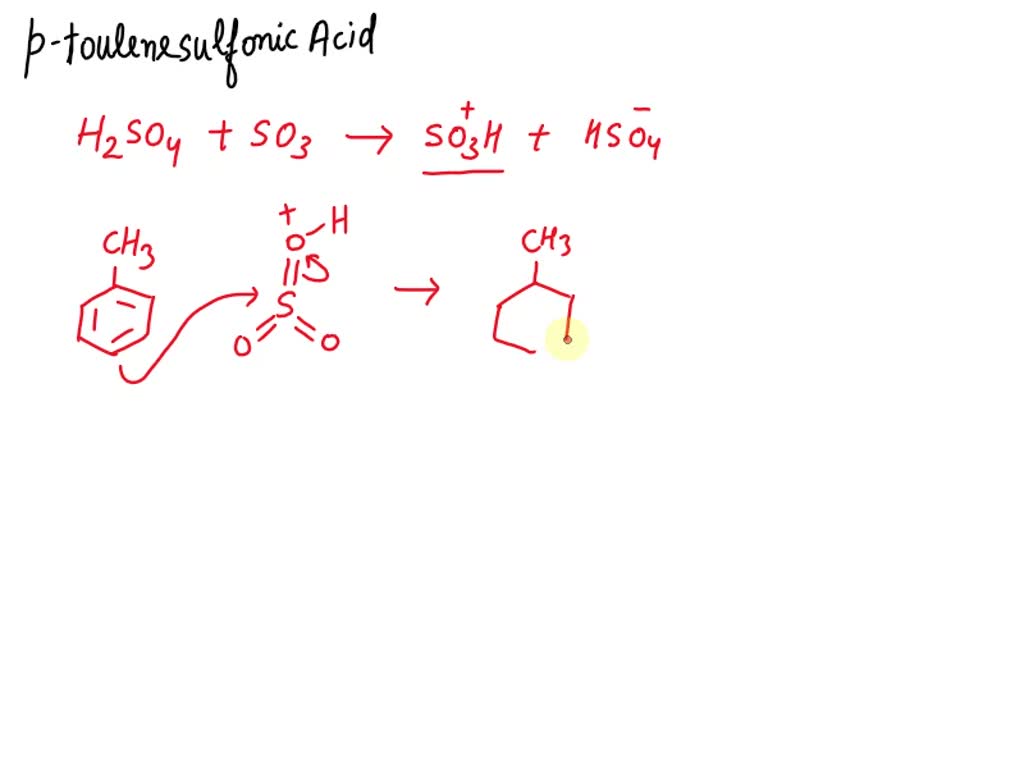 p-toulenesulfonic Acid
H₂SO₄ + SO₃ → SO₃⁺H + HSO₄⁻
CH₃ + O H CH₃
→
S
O O